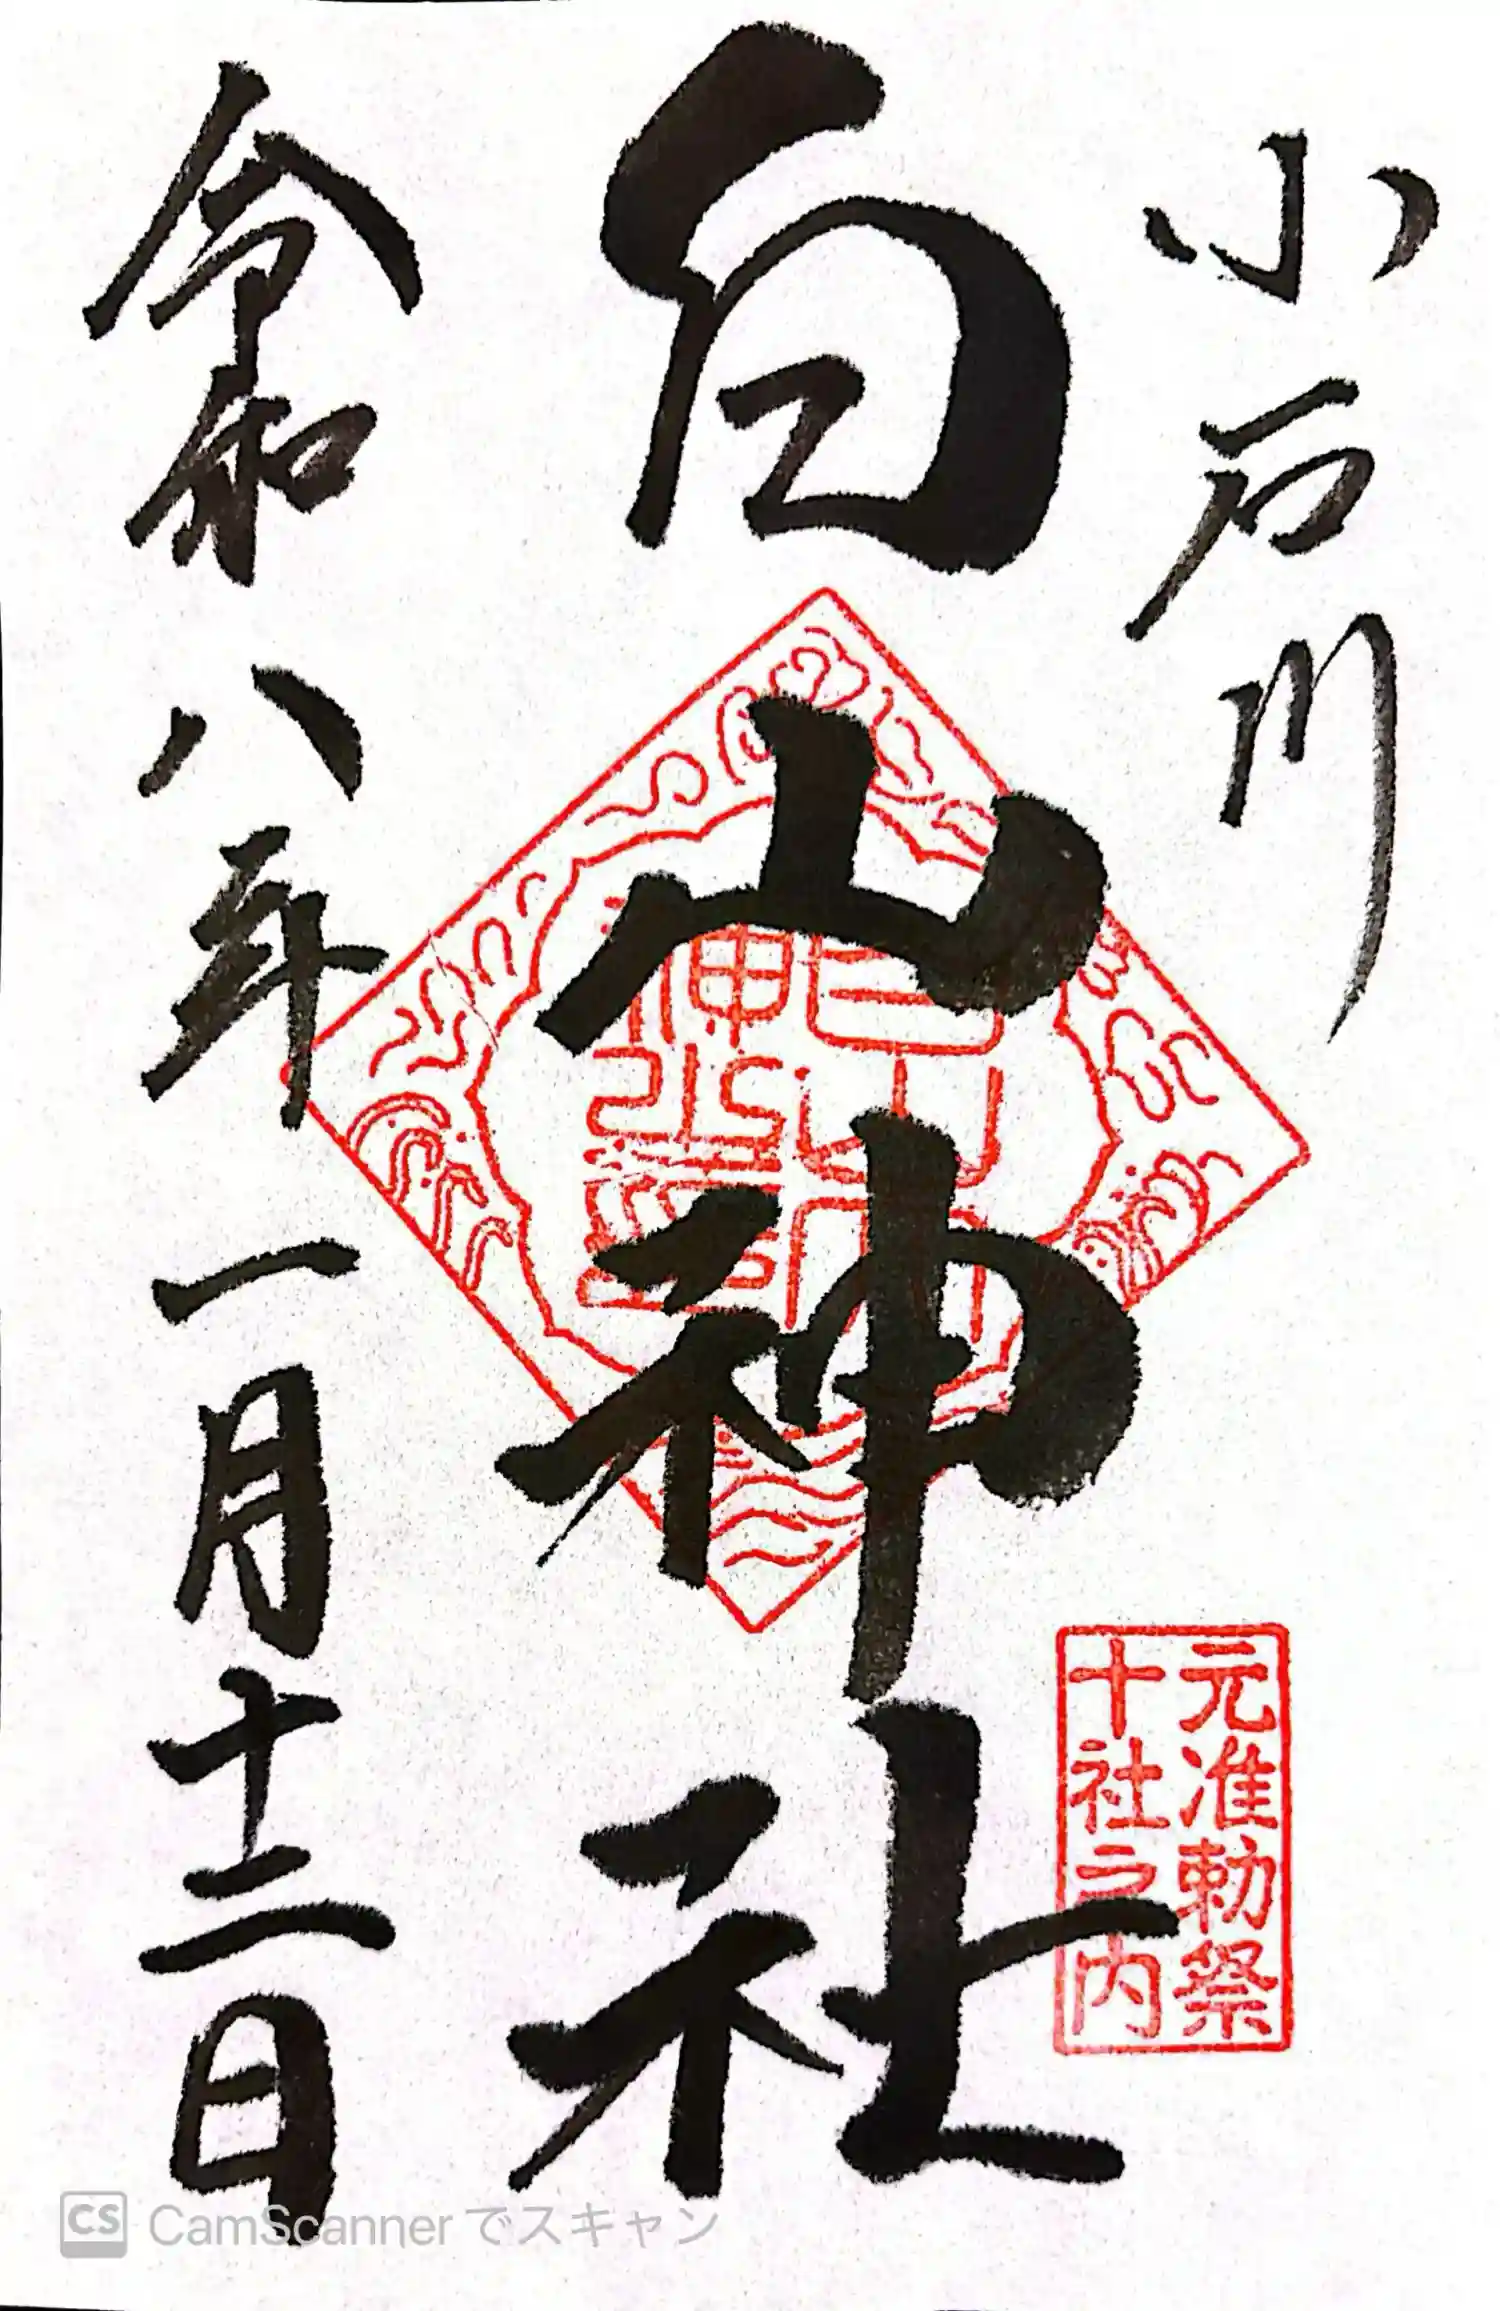 小石川
白山神社
元准勅祭
十社之内
令和八年一月十二日
CS CamScannerでスキャン